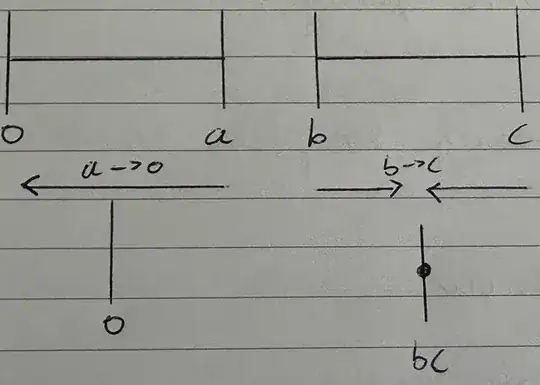 0 a b c
a→0 b→c
0
bc